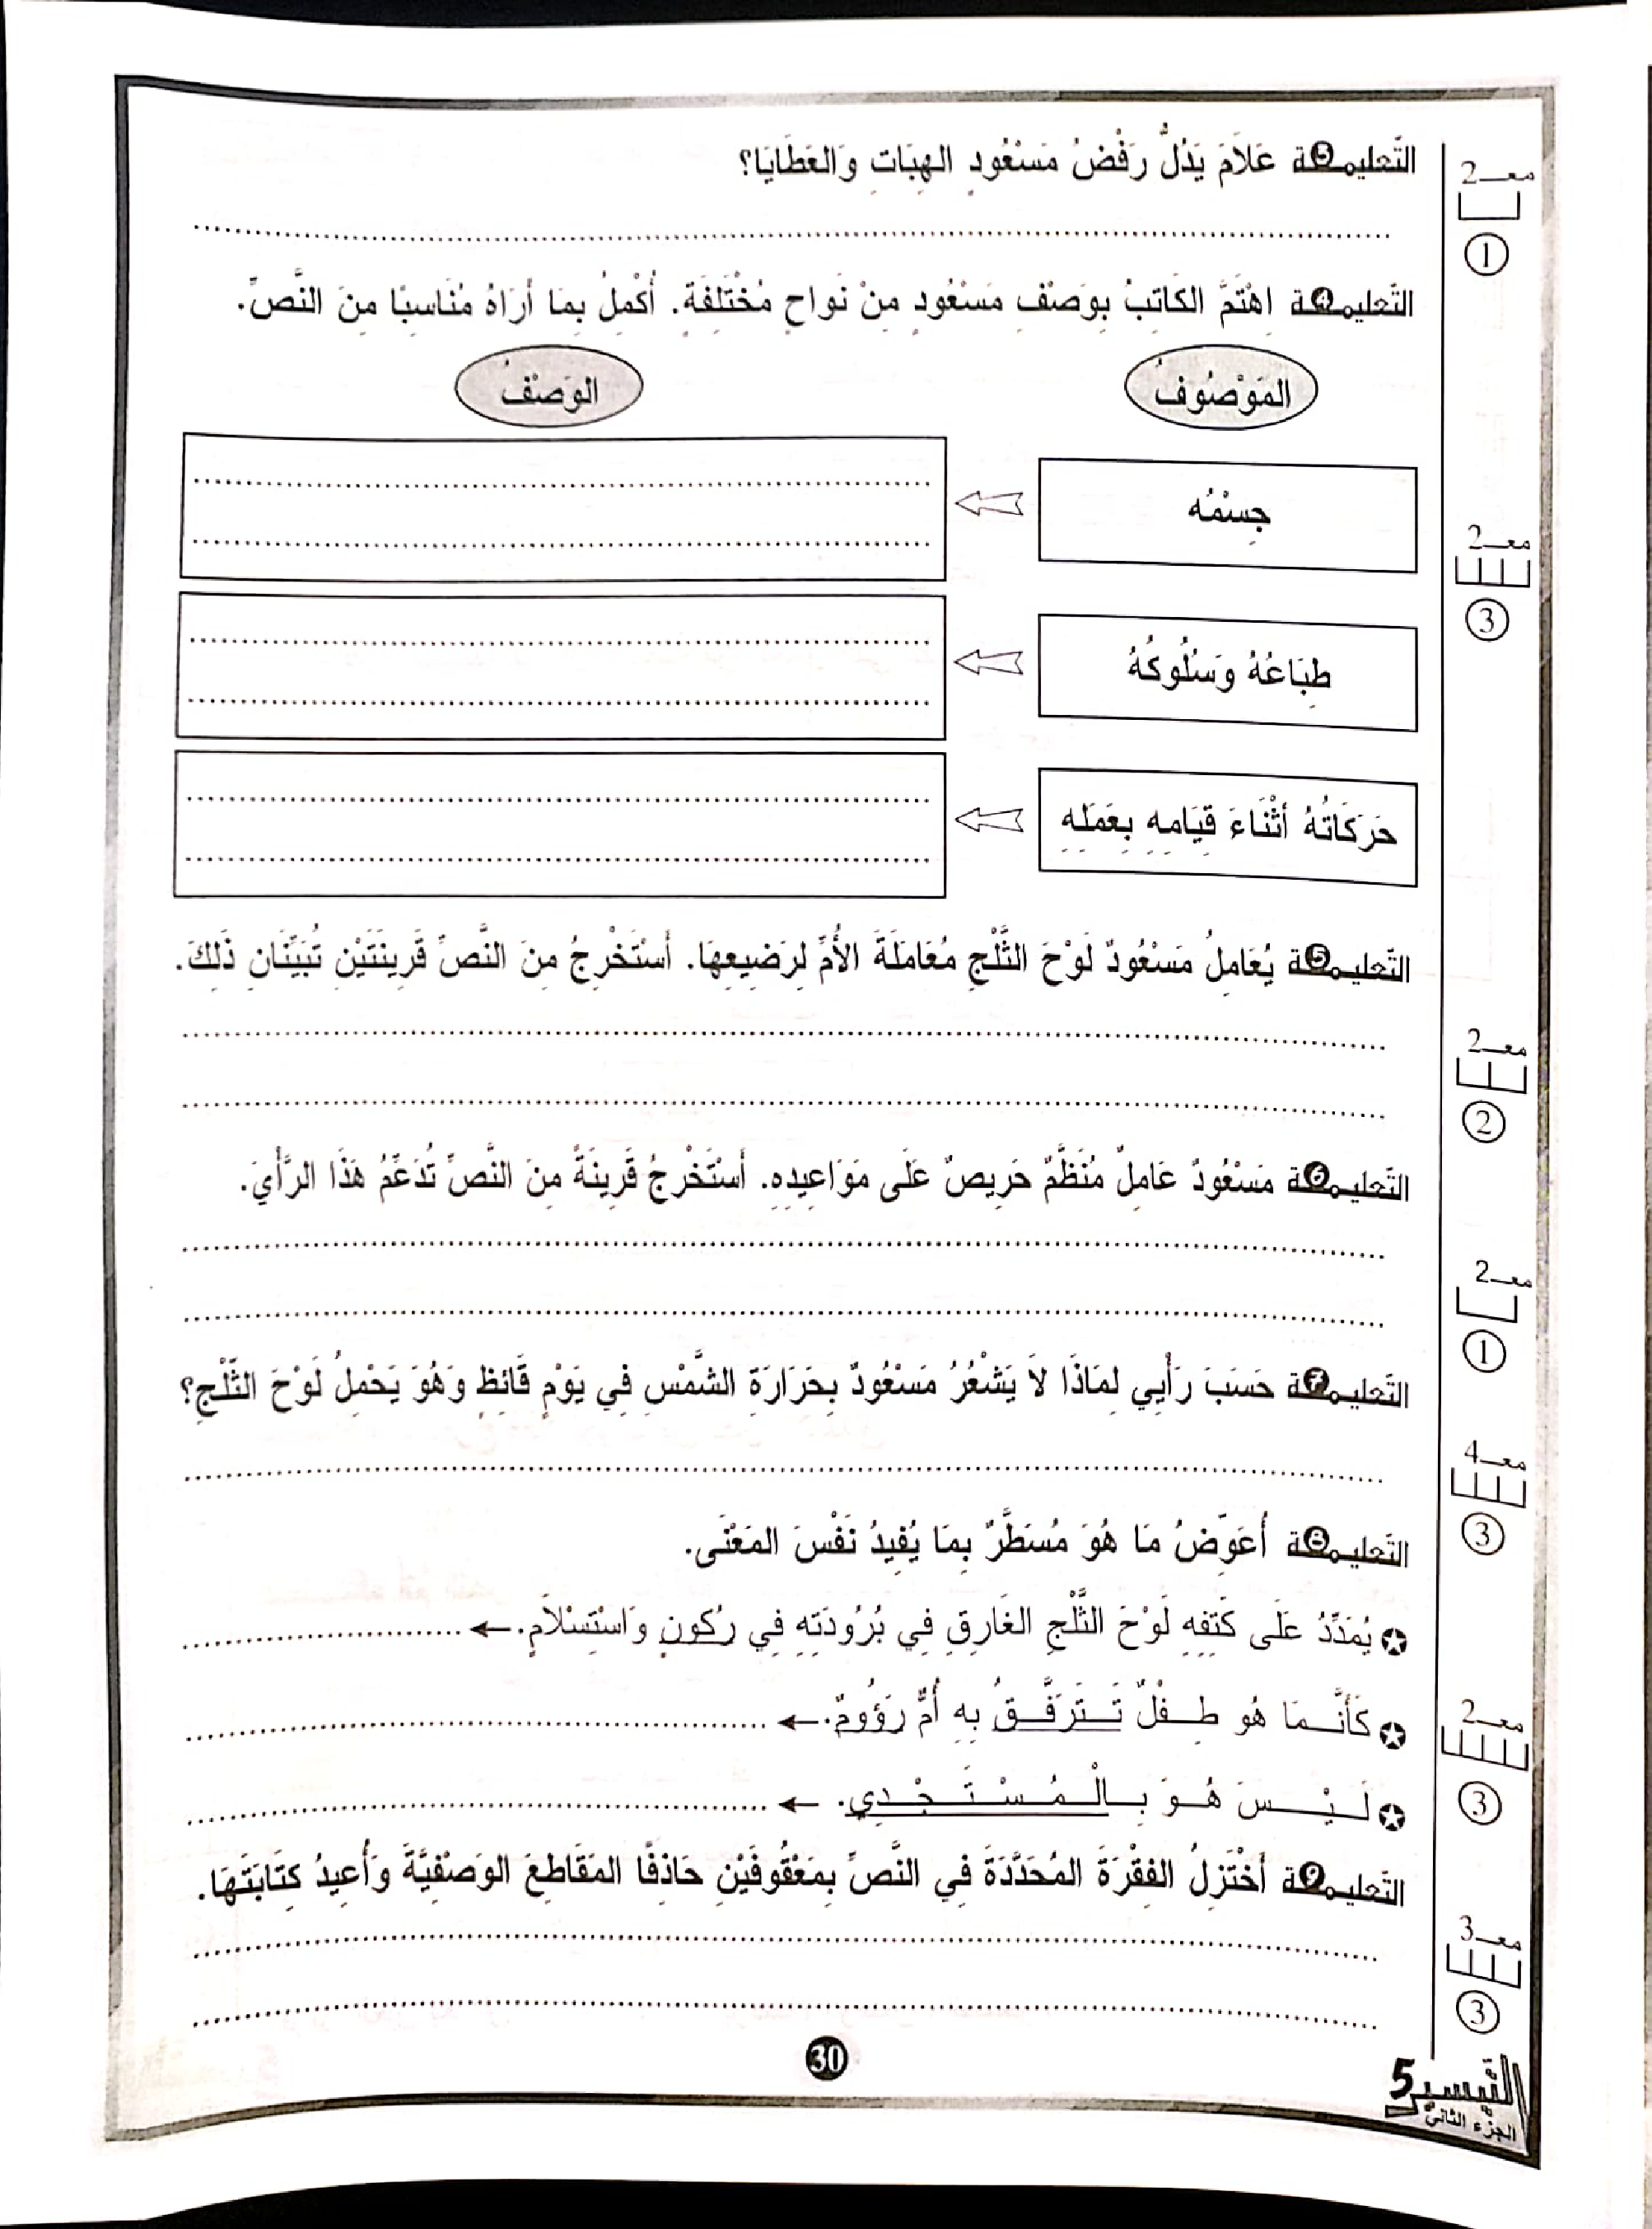 التّعليمة 3 عَلاَمَ يَدُلُّ رَفْضُ مَسْعُودٍ الهِبَاتِ وَالعَطَايَا؟
معـ2
1
التّعليمة 4 اِهْتَمَّ الكَاتِبُ بِوَصْفِ مَسْعُودٍ مِنْ نَواحٍ مُخْتَلِفَةٍ. أُكْمِلُ بِمَا أرَاهُ مُنَاسِبًا مِنَ النَّصِّ.
المَوْصُوفُ
الوَصْفُ
جِسْمُه
معـ2
3
طِبَاعُهُ وَسُلُوكُهُ
حَرَكَاتُهُ أثْنَاءَ قِيَامِهِ بِعَمَلِهِ
التّعليمة 5 يُعَامِلُ مَسْعُودٌ لَوْحَ الثَّلْجِ مُعَامَلَةَ الأُمِّ لِرَضِيعِهَا. أَسْتَخْرِجُ مِنَ النَّصِّ قَرِينَتَيْنِ تُبَيِّنَانِ ذَلِكَ.
معـ2
2
التّعليمة 6 مَسْعُودٌ عَامِلٌ مُنَظَّمٌ حَرِيصٌ عَلَى مَوَاعِيدِهِ. أَسْتَخْرِجُ قَرِينَةً مِنَ النَّصِّ تُدَعِّمُ هَذَا الرَّأْيَ.
معـ2
1
التّعليمة 7 حَسَبَ رَأْيِي لِمَاذَا لاَ يَشْعُرُ مَسْعُودٌ بِحَرَارَةِ الشَّمْسِ فِي يَوْمٍ قَائِظٍ وَهُوَ يَحْمِلُ لَوْحَ الثَّلْجِ؟
معـ4
3
التّعليمة 8 أُعَوِّضُ مَا هُوَ مُسَطَّرٌ بِمَا يُفِيدُ نَفْسَ المَعْنَى.
يُمَدِّدُ عَلَى كَتِفِهِ لَوْحَ الثَّلْجِ الغَارِقِ فِي بُرُودَتِهِ فِي رُكُونٍ وَاسْتِسْلاَمٍ.
كَأَنَّـمَا هُو طِـفْلٌ تَـتَرَفَّـقُ بِهِ أُمٌّ رَؤُومٌ.
معـ2
لَـيْـسَ هُـوَ بِـالْـمُـسْـتَـجْـدِي.
3
التّعليمة 9 أَخْتَزِلُ الفِقْرَةَ المُحَدَّدَةَ فِي النَّصِّ بِمَعْقُوفَيْنِ حَاذِفًا المَقَاطِعَ الوَصْفِيَّةَ وَأُعِيدُ كِتَابَتَهَا.
معـ3
3
30
التَّيْسير 5
الجزء الثاني